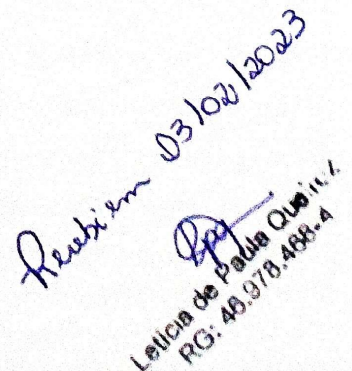 Recebi em 03/02/2023
Leticia de Paula
RG: 48.978.468-4